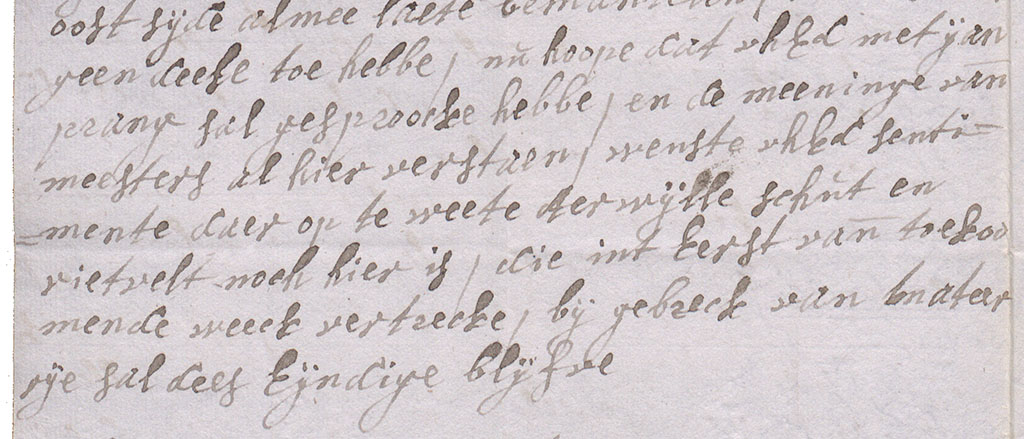 oost syde almee laete bemantelen,
geen deese toe hebbe, nu hoope dat uhEd met yan
prang sal gesproocke hebbe, en de meeninge van
meesters al hier verstaen, wenste uhEd senti=
=mente daer op te weete derwylle schut en
rietvelt noch hier is, die int Eerst van toekoo
mende weeck vertrecke, by gebreck van mater
rye sal dees Eyndige blyfve